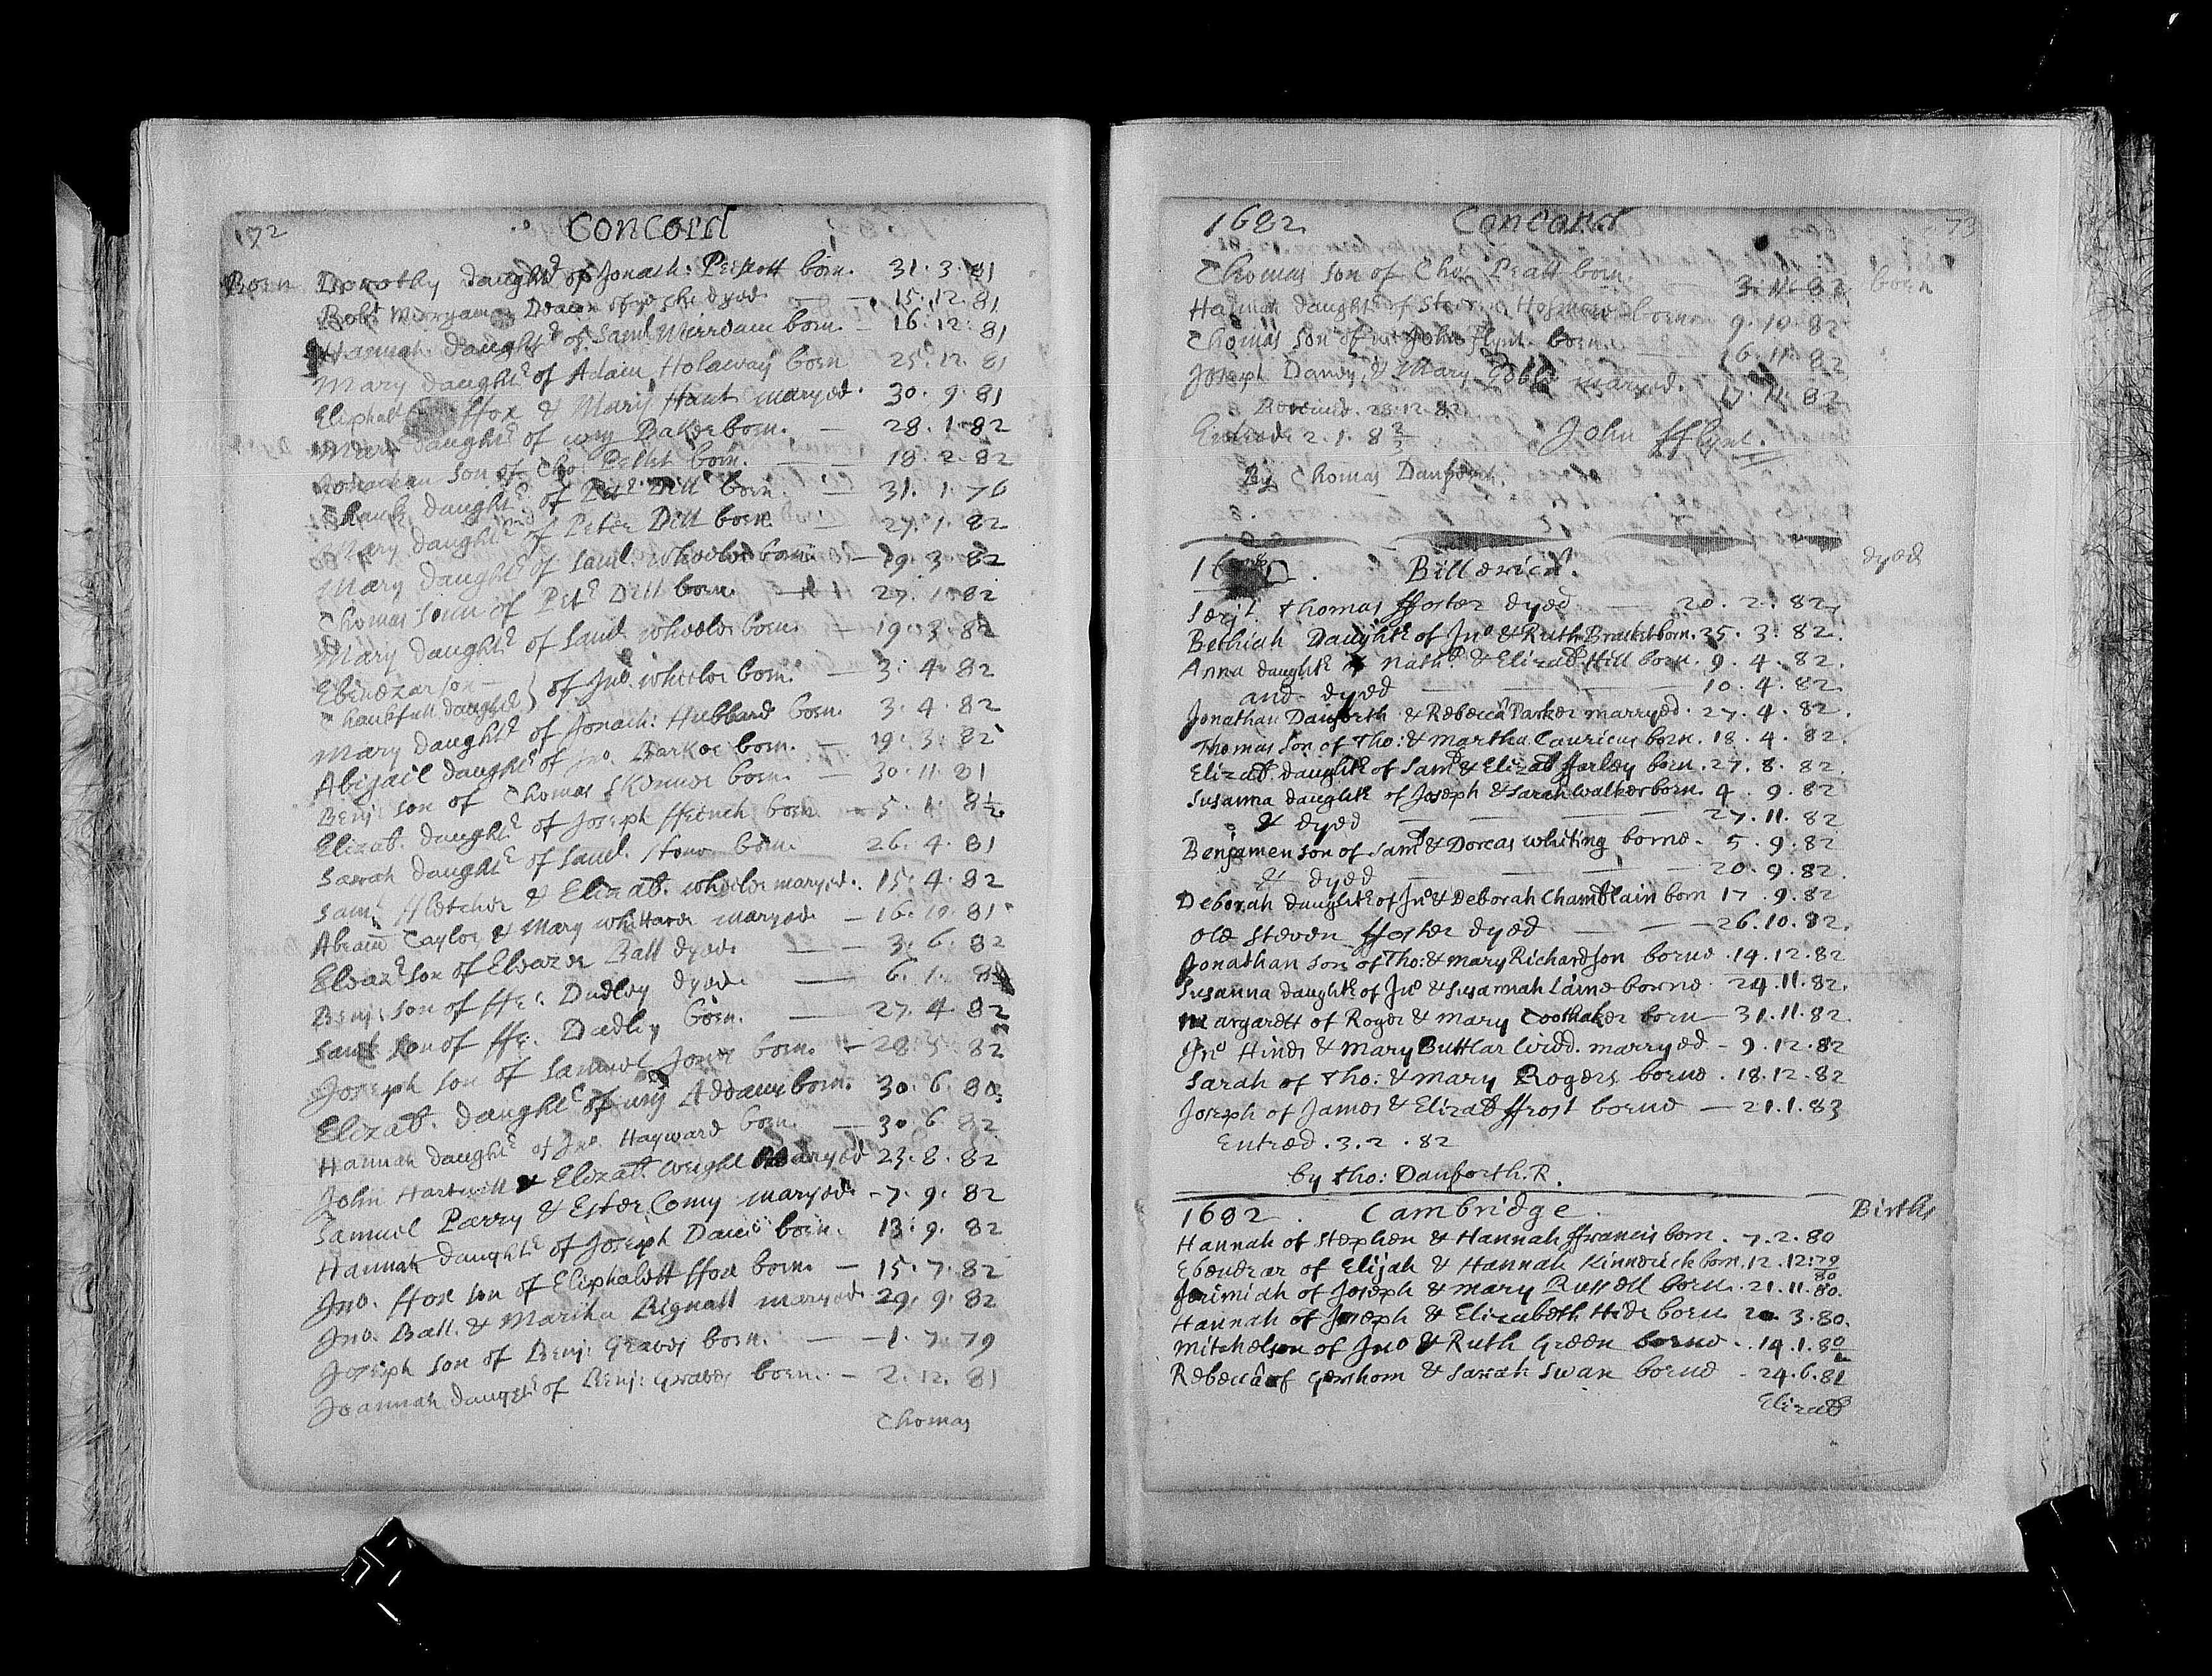 172 Concord
Born Dorothy daught^r of Jonath: Prescott born. 31. 3. 81
Rob^t Merryam Deacon of y^e ch: dyed — 15. 12. 81
Hannah daught^r of Sam^l. Merriam born. — 16. 12. 81
Mary daught^r of Adam Holaway born 25. 12. 81
Eliphal^t ffox & Mary Hunt maryed. 30. 9. 81
Mary daught^r of wm Baker born. — 28. 1. 82
son of Tho: Pellet born. — 18. 2. 82
Thank. daught^r of Pet^r Dill born. — 31. 1. 76
Mary daught^r of Peter Dill born. 27. 1. 82
Mary daught^r of Saml. wheeler born — 19. 3. 82
Thomas Sonn of Pet^r Dill born. — 27. 1. 82
Mary daught^r of Saml. wheeler born. — 19. 3. 82
Ebenezar son —
Thankfull daught^r } of Jno. wheeler born. — 3. 4. 82
Mary daught^r of Jonath: Hubbard born. 3. 4. 82
Abigail daught^r of Jno. Barker born. — 19. 3. 82
Benj: son of Thomas Skinner born. — 30. 11. 81
Elizab. daught^r of Joseph ffrench born — 5. 4. 8½
Sarah daught^r of Saml. Stone born. 26. 4. 81
Sam^l. ffletcher & Elizab. wheeler maryed. 15. 4. 82
Abram Taylor & Mary whittaker maryed — 16. 10. 81
Eleaz^r son of Eleazer Ball dyed — 3. 6. 82
Benj: son of ffr: Dudley dyed. — 6. 1.
Sam^l son of ffr. Dudley born. — 27. 4. 82
Joseph son of Samuel Jones born. — 28. 5. 82
Elizab. daught^r of wm Addams born. 30. 6. 80.
Hannah daught^r of Jno. Hayward born. — 30. 6. 82
John Hartwell & Elizab. wright maryed 23. 8. 82
Samuel Parry & Ester Comy maryed. - 7. 9. 82
Hannah daught^r of Joseph Davis born. 13. 9. 82
Jno. ffox son of Eliphalett ffox born. — 15. 7. 82
Jno. Ball. & Martha Bignall maryed 29. 9. 82
Joseph son of Benj: Graves born. — 1. 7. 79
Joannah daught^r of Benj: Graves born. — 2. 12. 81
Thomas
1682 Concord 73
Thomas son of Tho: Pratt born. 3. 11. 82 born
Hannah daught^r of Steven Hosmer born 9. 10. 82
Thomas son of mr John fflynt. born. 16. 11. 82
Joseph Dandy, & Mary Goble maryed. 17. 11. 82
Received. 28. 12. 82
Entred. 2. 1. 8⅔ John fflynt.
By Thomas Danforth.
Billerica. dyed
Serjt. Thomas ffoster dyed — 20. 2. 82
Bethiah Daught^r of Jn^o & Ruth Bracket born. 35. 3. 82.
Anna daught^r of Nath^l & Elizab. Hill born. 9. 4. 82.
and dyed — 10. 4. 82.
Jonathan Danforth & Rebecca Parker marryed. 27. 4. 82.
Thomas son of Tho: & Martha Carrier born. 18. 4. 82.
Elizab. daught^r of Sam^l & Elizab. ffarley born. 27. 8. 82.
Susanna daught^r of Joseph & Sarah walker born. 4. 9. 82
& dyed — 27. 11. 82
Benjamen son of Sam^l & Dorcas whiting borne. 5. 9. 82
& dyed — 20. 9. 82.
Deborah daught^r of Jn^o & Deborah Chamblain born 17. 9. 82
old Steven ffoster dyed — 26. 10. 82.
Jonathan son of Tho: & mary Richardson borne. 14. 12. 82
Susanna daught^r of Jn^o & Susannah Laine borne. 24. 11. 82.
margarett of Roger & mary Toothaker born — 31. 11. 82.
Jn^o Hinds & Mary Buttlar widd. marryed - 9. 12. 82
Sarah of Tho: & mary Rogers borne. 18. 12. 82
Joseph of James & Elizab ffrost borne — 21. 1. 83
Entred. 3. 2. 82
by Tho: Danforth. R.
1682. Cambridge. Births
Hannah of Stephen & Hannah ffrancis born. 7. 2. 80
Ebenezar of Elijah & Hannah Kinnerick born. 12. 12. 79/80
Jerimiah of Joseph & mary Russell born. 21. 11. 80.
Hannah of Joseph & Elizabeth Hide born 3. 80.
Mitchelson of Jno & Ruth Green borne. 14. 1. 80
Rebecca of Gershom & Sarah Swan borne - 24. 6. 81
Elizab